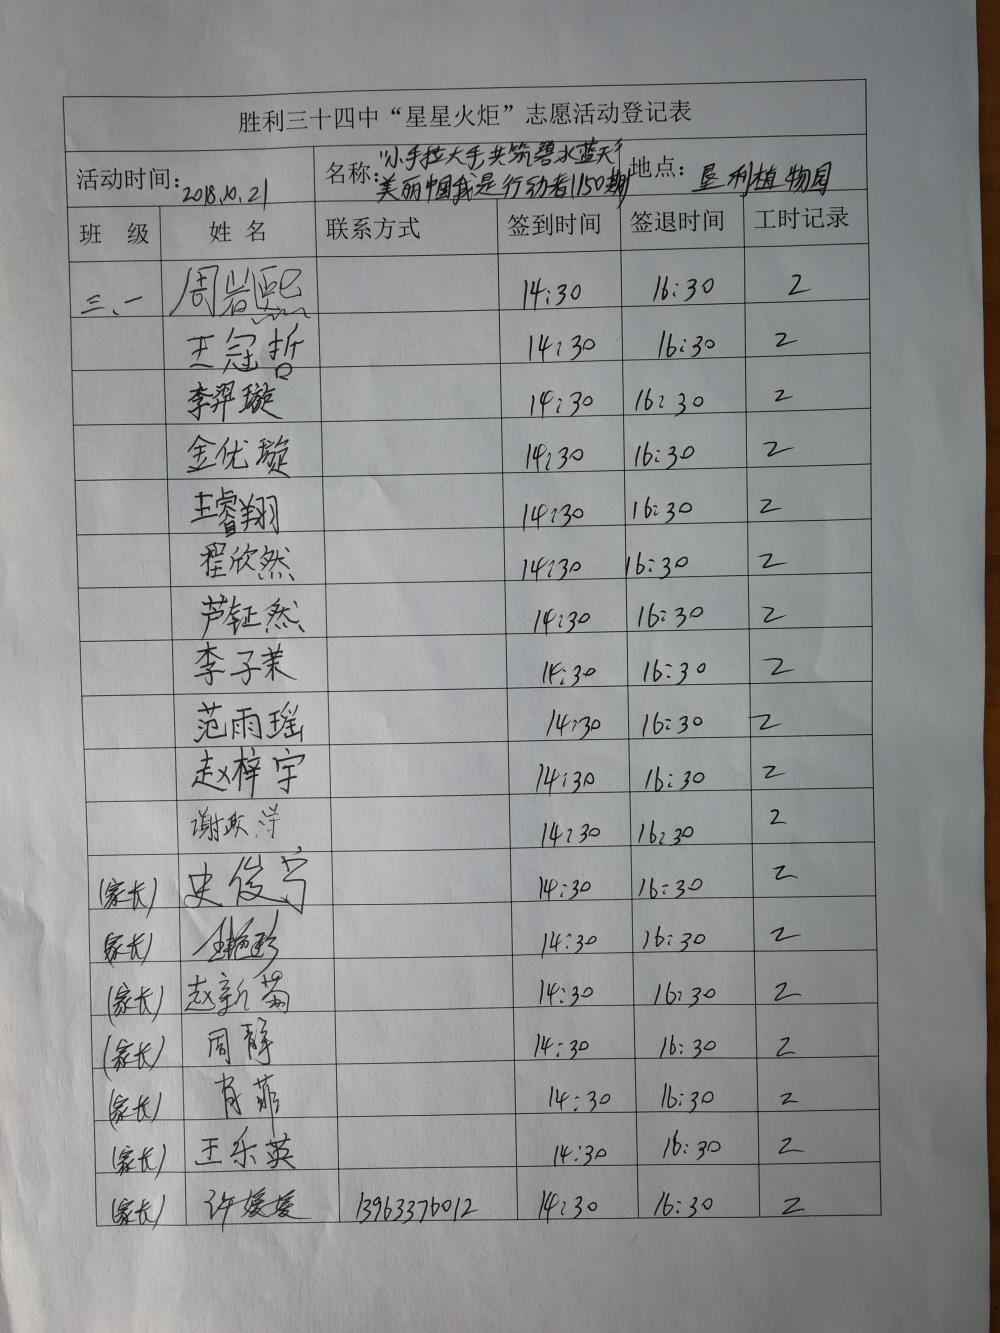 胜利三十四中“星星火炬”志愿活动登记表
活动时间: 2018.10.21 名称: “小手拉大手共筑碧水蓝天” 地点: 垦利植物园
美丽中国我是行动者(150期)
班 级 姓 名 联系方式 签到时间 签退时间 工时记录
三、一 周岩熙 14:30 16:30 2
王冠哲 14:30 16:30 2
李羿璇 14:30 16:30 2
金优璇 14:30 16:30 2
王睿翔 14:30 16:30 2
程欣然 14:30 16:30 2
芦钲然 14:30 16:30 2
李子茉 14:30 16:30 2
范雨瑶 14:30 16:30 2
赵梓宇 14:30 16:30 2
谢跃洋 14:30 16:30 2
(家长) 史俊宁 14:30 16:30 2
家长) 14:30 16:30 2
(家长) 赵新菊 14:30 16:30 2
(家长) 周静 14:30 16:30 2
(家长) 肖菲 14:30 16:30 2
(家长) 王乐英 14:30 16:30 2
(家长) 许媛媛 13963376012 14:30 16:30 2